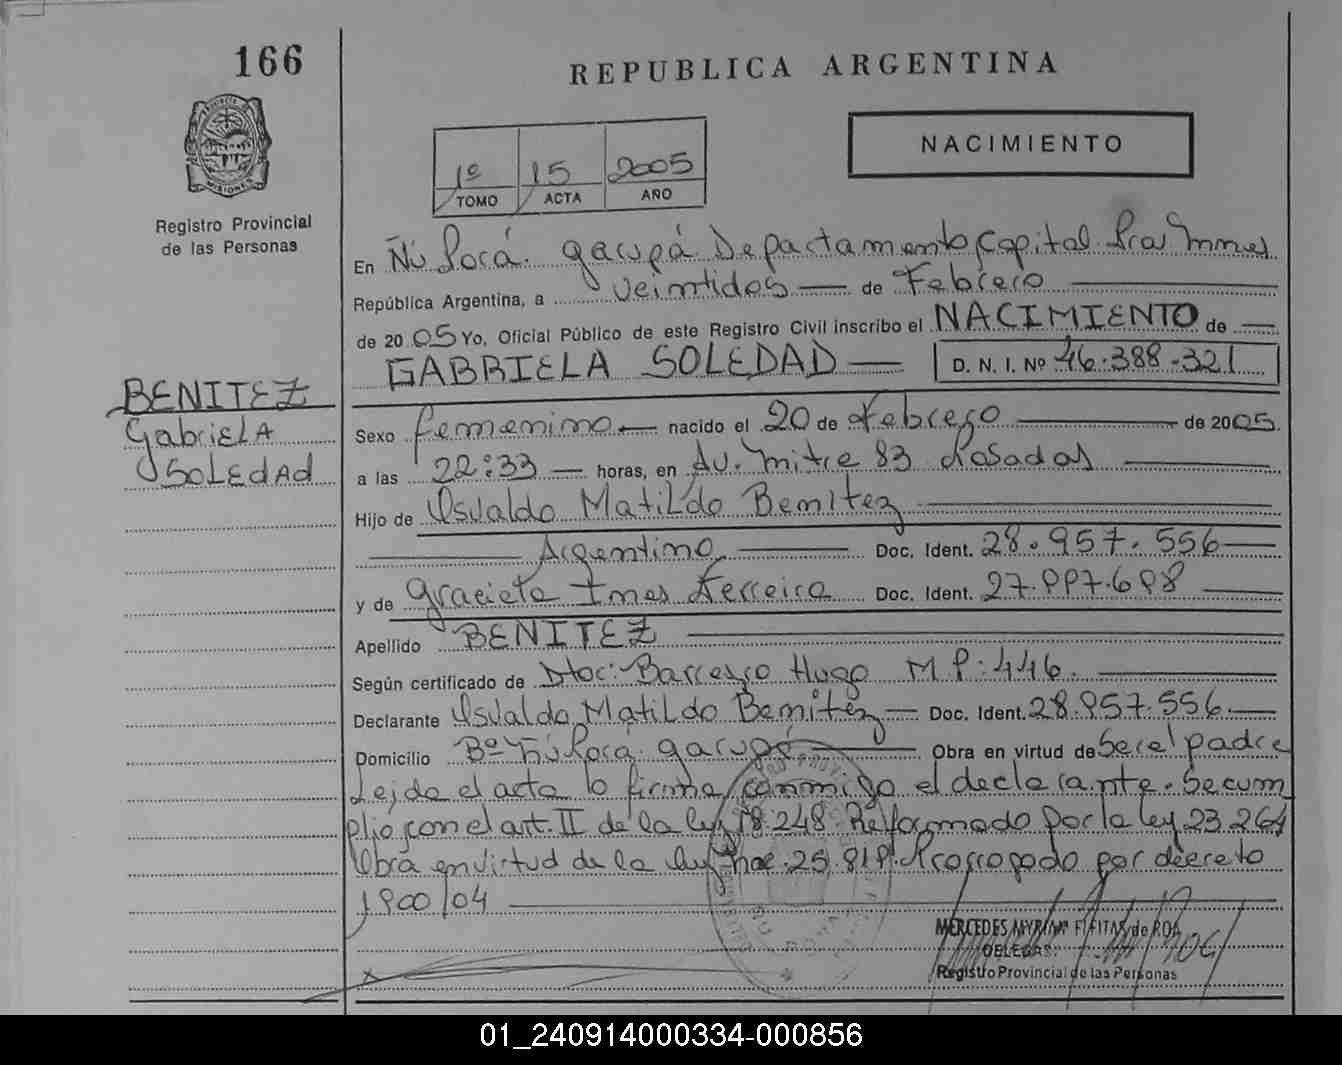 166
REPUBLICA ARGENTINA
NACIMIENTO
1º 15 2005
TOMO ACTA AÑO
MISIONES
Registro Provincial
de las Personas
En Ñu Porá. Garupá Departamento Capital. Pcia Mnes
República Argentina, a veintidos — de Febrero
de 2005 Yo, Oficial Público de este Registro Civil inscribo el NACIMIENTO de —
GABRIELA SOLEDAD — D. N. I. Nº 46.388.321
BENITEZ
Gabriela
SOLEDAD
Sexo femenino — nacido el 20 de Febrero — de 2005
a las 22:33 — horas, en Av. Mitre 83 Posadas
Hijo de Osvaldo Matildo Benitez
Argentino — Doc. Ident. 28.957.556
y de Graciela Ines Ferreira Doc. Ident. 27.997.698
Apellido BENITEZ
Según certificado de Dtor: Hugo M.P: 446.
Declarante Osvaldo Matildo Benitez — Doc. Ident. 28.957.556
Domicilio Bº Ñu Porá. Garupá — Obra en virtud de Ser el padre
Leida el acta la firma conmigo el declarante. Se cum
plió con el art. II de la ley 18.248 Reformado por la ley 23.264
Obra en virtud de la ley Nac. 25.819. Prorrogado por decreto
1900/04
MERCEDES MYRIAM FREITAS de ROA
DELEGADA
Registro Provincial de las Personas
01_240914000334-000856